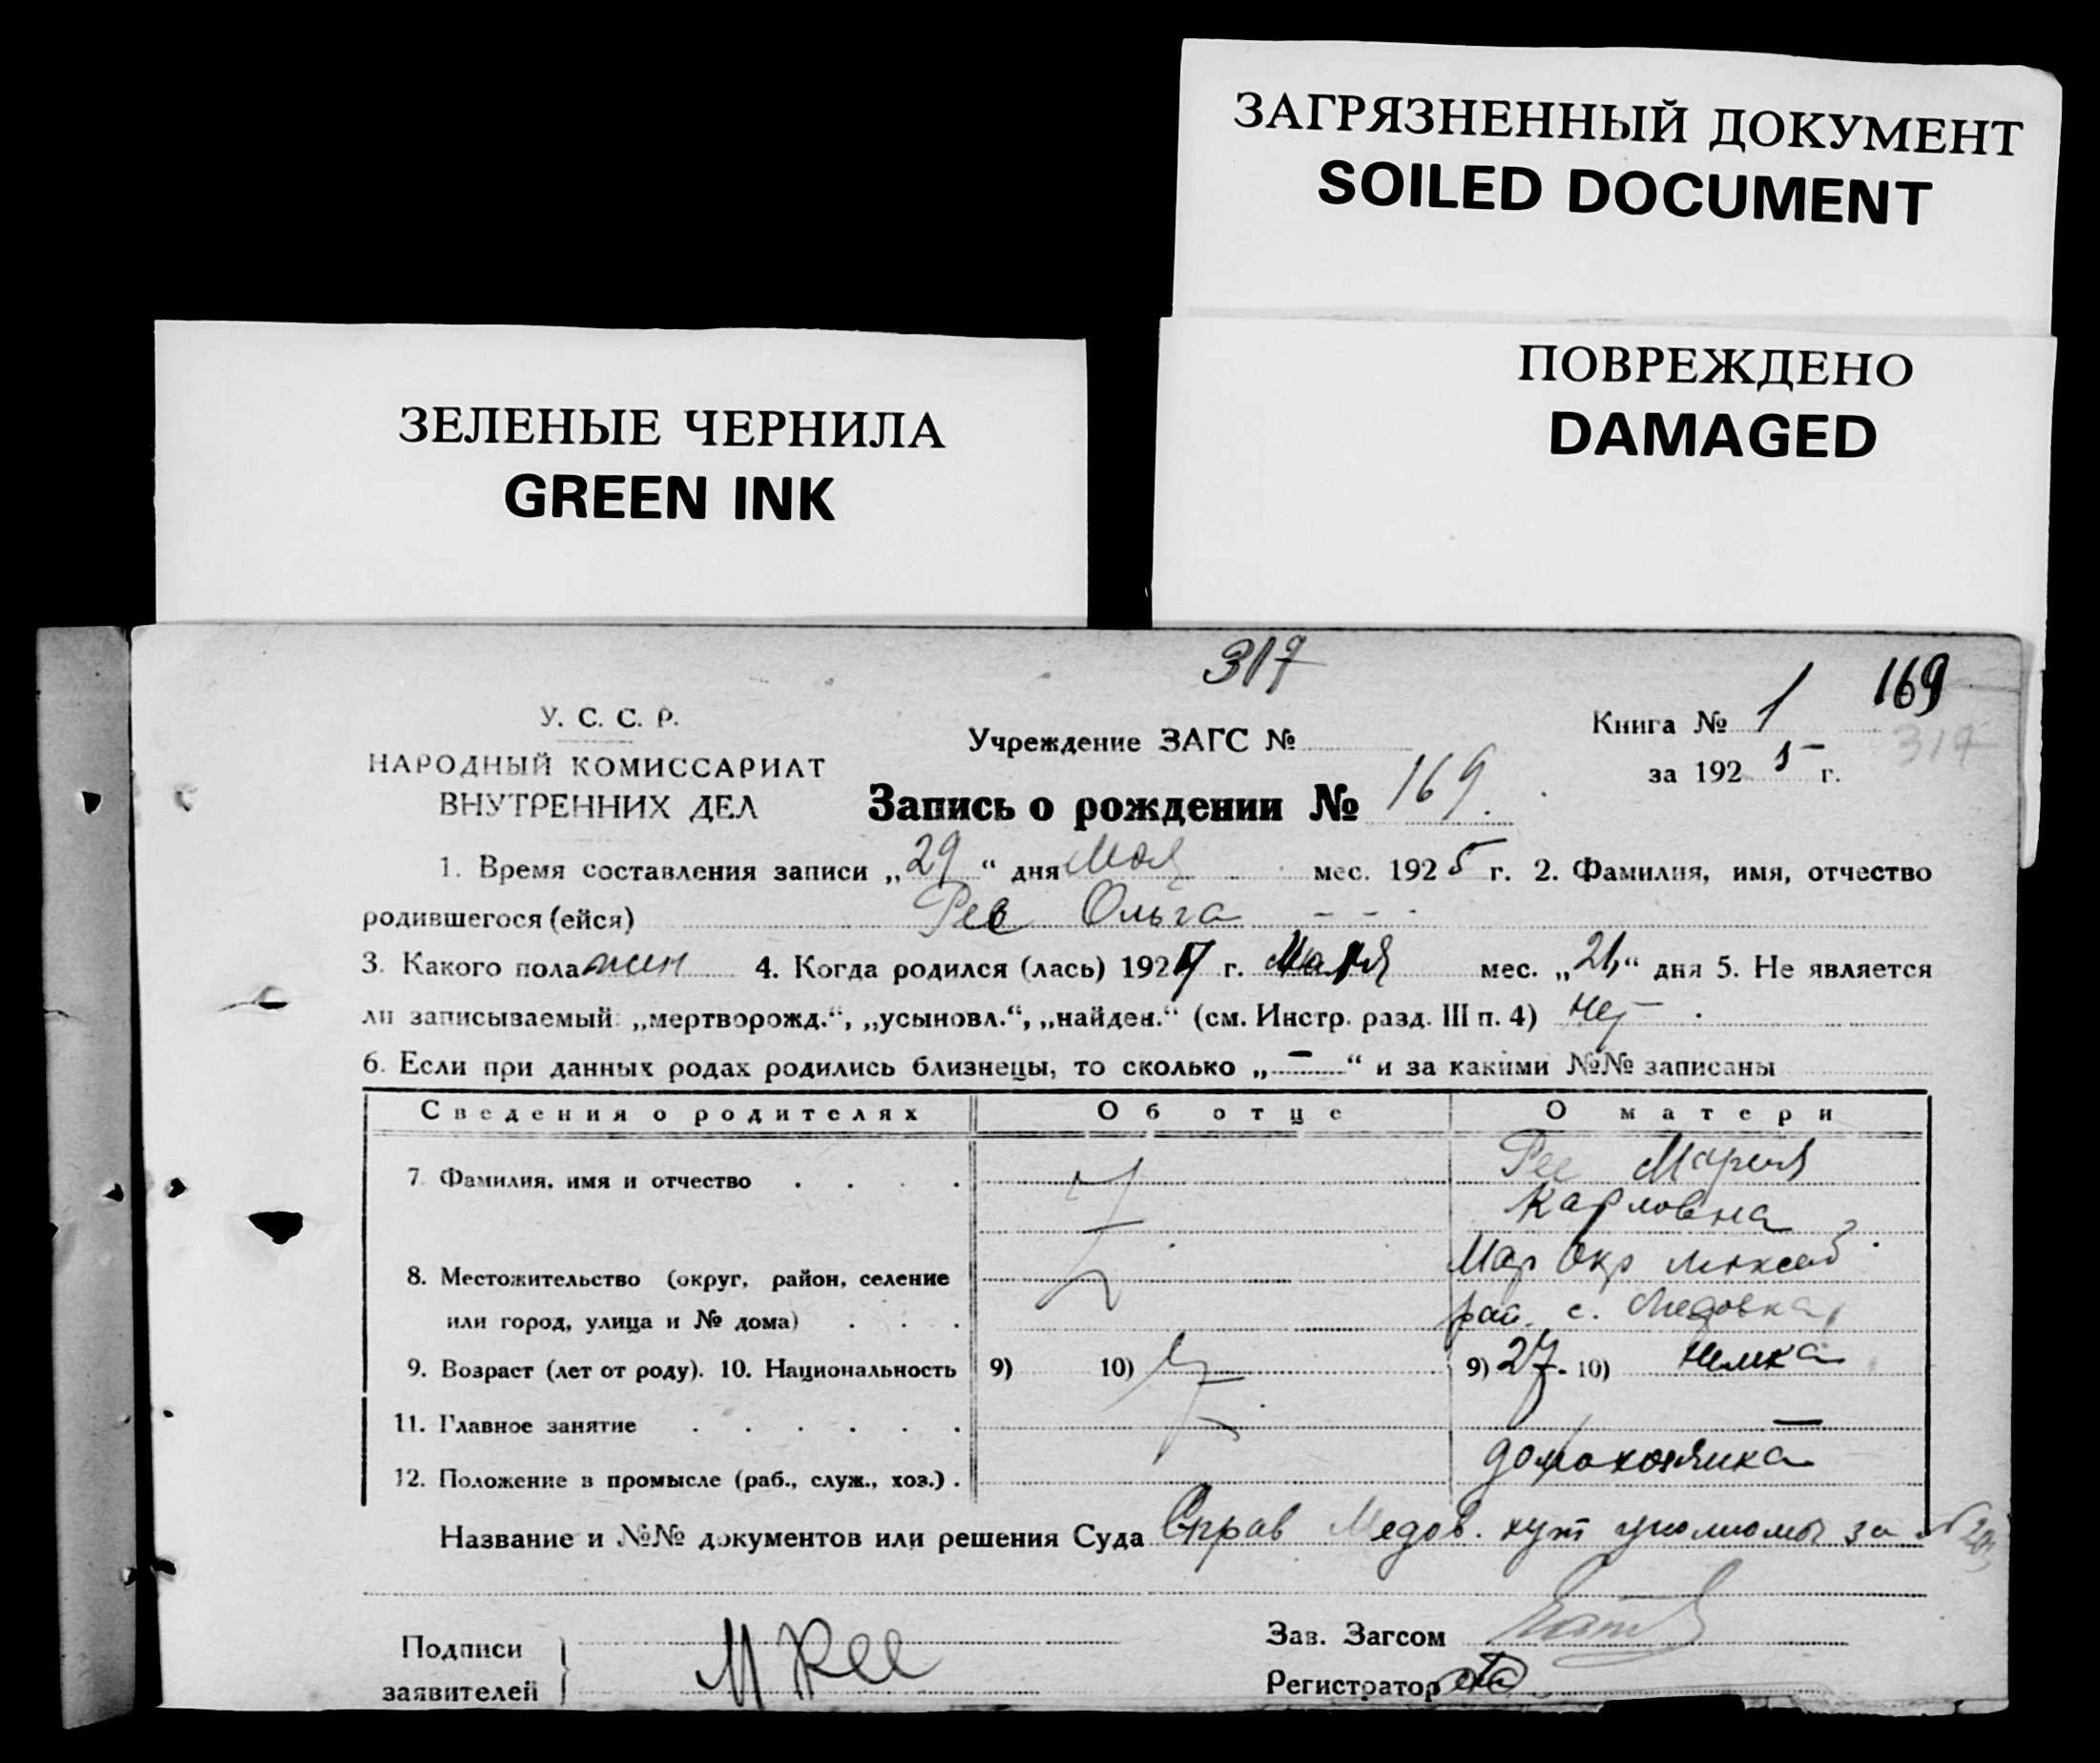 ЗАГРЯЗНЕННЫЙ ДОКУМЕНТ
SOILED DOCUMENT
ПОВРЕЖДЕНО
DAMAGED
ЗЕЛЕНЫЕ ЧЕРНИЛА
GREEN INK
317
169
У. С. С. Р.
НАРОДНЫЙ КОМИССАРИАТ
ВНУТРЕННИХ ДЕЛ
Учреждение ЗАГС №
Книга № 1
317
за 192 5 г.
Запись о рождении № 169.
1. Время составления записи „29“ дня Мая мес. 1925 г. 2. Фамилия, имя, отчество
родившегося (ейся) Рее Ольга - - -
3. Какого пола жен 4. Когда родился (лась) 192 г. мес. „21“ дня 5. Не является
ли записываемый: „мертворожд.“, „усыновл.“, „найден.“ (см. Инстр. разд. III п. 4) нет
6. Если при данных родах родились близнецы, то сколько „—“ и за какими №№ записаны
Сведения о родителях Об отце О матери
7. Фамилия, имя и отчество . . . . Рее Мария
Карловна
8. Местожительство (округ, район, селение Мар Окр Люксемб
или город, улица и № дома) . . . рай. с. Медовка
9. Возраст (лет от роду). 10. Национальность 9) 10) 9) 27. 10) Немка
11. Главное занятие . . . . . . —
12. Положение в промысле (раб., служ., хоз.) . домохозяйка
Название и №№ документов или решения Суда Справ Медов. хут за №
Подписи
заявителей } М Рее
Зав. Загсом
Регистратор